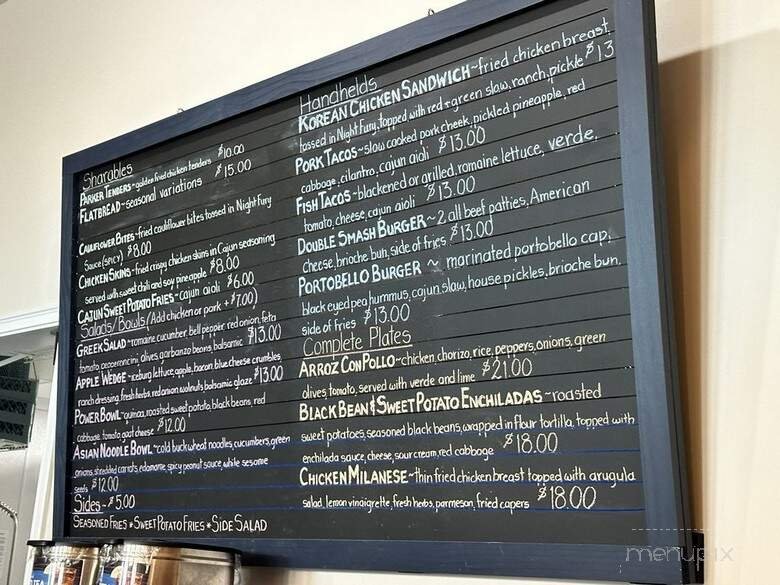 Sharables
PARKER TENDERS~golden fried chicken tenders $10.00
FLATBREAD~seasonal variations $15.00
CAULIFLOWER BITES~fried cauliflower bites tossed in Night Fury
Sauce (spicy) $8.00
CHICKEN SKINS~fried crispy chicken skins in Cajun seasoning
served with sweet chili and soy pineapple $8.00
CAJUN SWEET POTATO FRIES~cajun aioli $6.00
Salads/Bowls (Add chicken or pork +$7.00)
GREEK SALAD~romaine, cucumber, bell pepper, red onion, feta
tomato, pepperoncini, olives, garbanzo beans, balsamic $13.00
APPLE WEDGE~iceburg lettuce, apple, bacon, blue cheese crumbles
ranch dressing, fresh herbs, red onion, walnuts, balsamic glaze $13.00
POWER BOWL~quinoa, roasted sweet potato, black beans, red
cabbage, tomato, goat cheese $12.00
ASIAN NOODLE BOWL~cold buckwheat noodles, cucumbers, green
onions, shredded carrots, edamame, spicy peanut sauce, white sesame
seeds $12.00
Sides~$5.00
SEASONED FRIES * SWEET POTATO FRIES * SIDE SALAD
Handhelds
KOREAN CHICKEN SANDWICH~fried chicken breast
tossed in Night Fury, topped with red+green slaw, ranch, pickle $13
PORK TACOS~slow cooked pork cheek, pickled pineapple, red
cabbage, cilantro, cajun aioli $13.00
FISH TACOS~blackened or grilled, romaine lettuce, verde,
tomato, cheese, cajun aioli $13.00
DOUBLE SMASH BURGER~2 all beef patties, American
cheese, brioche bun, side of fries $13.00
PORTOBELLO BURGER ~ marinated portobello cap,
black eyed pea hummus, cajun slaw, house pickles, brioche bun,
side of fries $13.00
Complete Plates
ARROZ CON POLLO~chicken, chorizo, rice, peppers, onions, green
olives, tomato, served with verde and lime $21.00
BLACK BEAN & SWEET POTATO ENCHILADAS ~roasted
sweet potatoes, seasoned black beans, wrapped in flour tortilla, topped with
enchilada sauce, cheese, sour cream, red cabbage $18.00
CHICKEN MILANESE~thin fried chicken breast topped with arugula
salad, lemon vinaigrette, fresh herbs, parmesan, fried capers $18.00
menupix